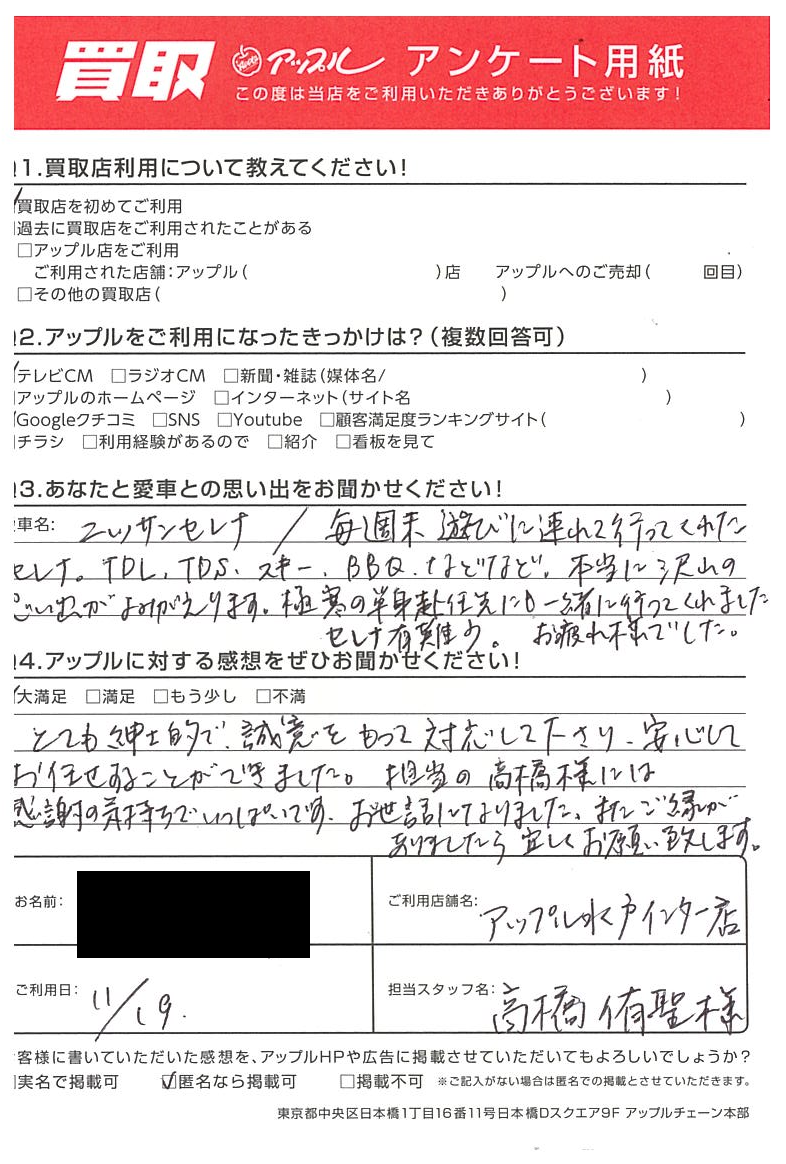 買取 アップル アンケート用紙
この度は当店をご利用いただきありがとうございます!
1.買取店利用について教えてください!
買取店を初めてご利用
過去に買取店をご利用されたことがある
□アップル店をご利用
ご利用された店舗:アップル( )店 アップルへのご売却( 回目)
□その他の買取店( )
2.アップルをご利用になったきっかけは?(複数回答可)
テレビCM □ラジオCM □新聞・雑誌(媒体名/ )
アップルのホームページ □インターネット(サイト名 )
Googleクチコミ □SNS □Youtube □顧客満足度ランキングサイト( )
チラシ □利用経験があるので □紹介 □看板を見て
3.あなたと愛車との思い出をお聞かせください!
車名: ニッサンセレナ / 毎週末 遊びに連れて行ってくれた
セレナ。TDL、TDS、スキー、BBQ、などなど。本当に沢山の
思い出がよみがえります。極寒の単身赴任先にも一緒に行ってくれました
セレナ有難う。 お疲れ様でした。
4.アップルに対する感想をぜひお聞かせください!
大満足 □満足 □もう少し □不満
とても紳士的で、誠意をもって対応して下さり、安心して
お任せすることができました。担当の高橋様には
感謝の気持ちでいっぱいです。お世話になりました。またご縁が
ありましたら宜しくお願い致します。
お名前: ご利用店舗名: アップル水戸インター店
ご利用日: 11/19. 担当スタッフ名: 高橋 侑聖様
客様に書いていただいた感想を、アップルHPや広告に掲載させていただいてもよろしいでしょうか?
実名で掲載可 ☑匿名なら掲載可 □掲載不可 ※ご記入がない場合は匿名での掲載とさせていただきます。
東京都中央区日本橋1丁目16番11号日本橋Dスクエア9F アップルチェーン本部